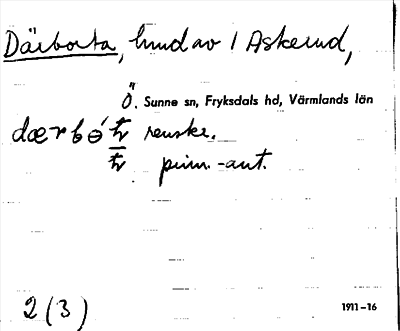 Därborta, hmd av 1 Askerud,
Ö. Sunne sn, Fryksdals hd, Värmlands län
dærbó renskr.
prim.-ant.
2 (3)
1911–16